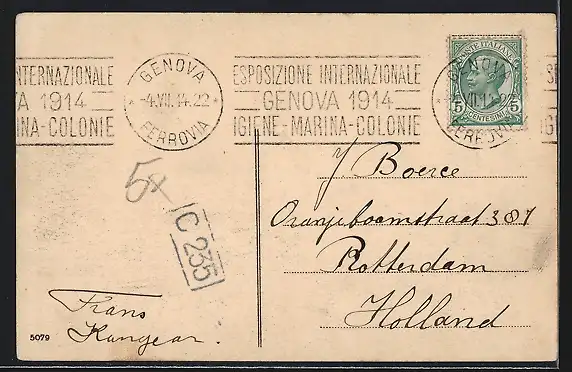 INTERNAZIONALE
VA 1914
INA-COLONIE
GENOVA
-4.VII.14.22
FERROVIA
ESPOSIZIONE INTERNAZIONALE
GENOVA 1914
IGIENE-MARINA-COLONIE
POSTE ITALIANE
5 5
CENTESIMI
GENOVA
FERROVIA
Boerce
Oranjeboomstraat 387
Rotterdam
Holland
C 235
Frans
5079